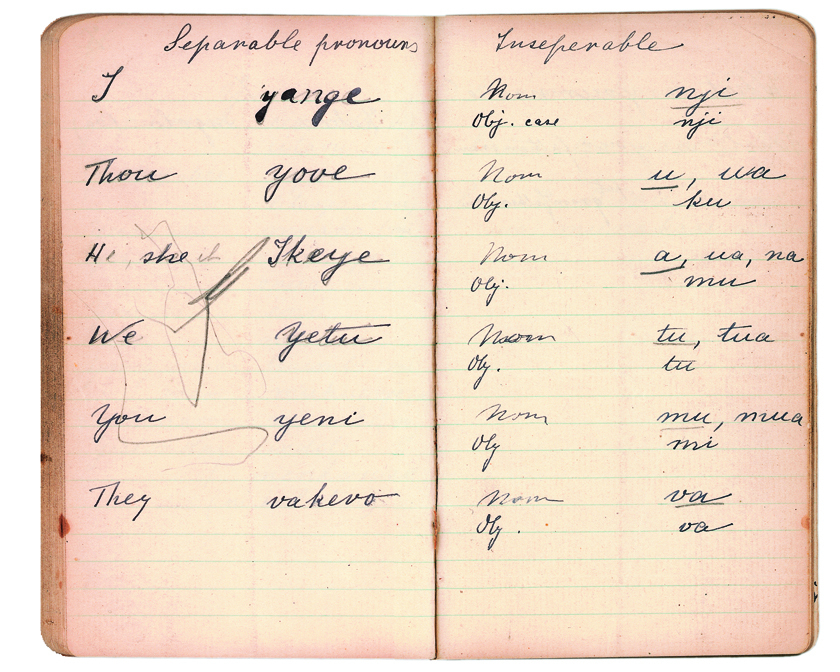 Separable pronouns
I yange
Thou yove
He, she it Ikeye
We yetu
You yeni
They vakevo
Inseperable
Nom nji
Obj. case nji
Nom u, ua
Obj. ku
Nom a, ua, na
Obj. mu
Nom tu, tua
Obj. tu
Nom mu, mua
Obj mi
Nom va
Obj. va